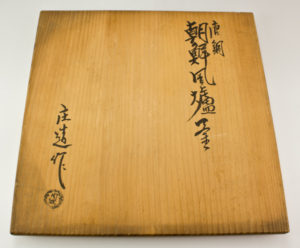 唐銅
朝鮮風爐釜
庄造作